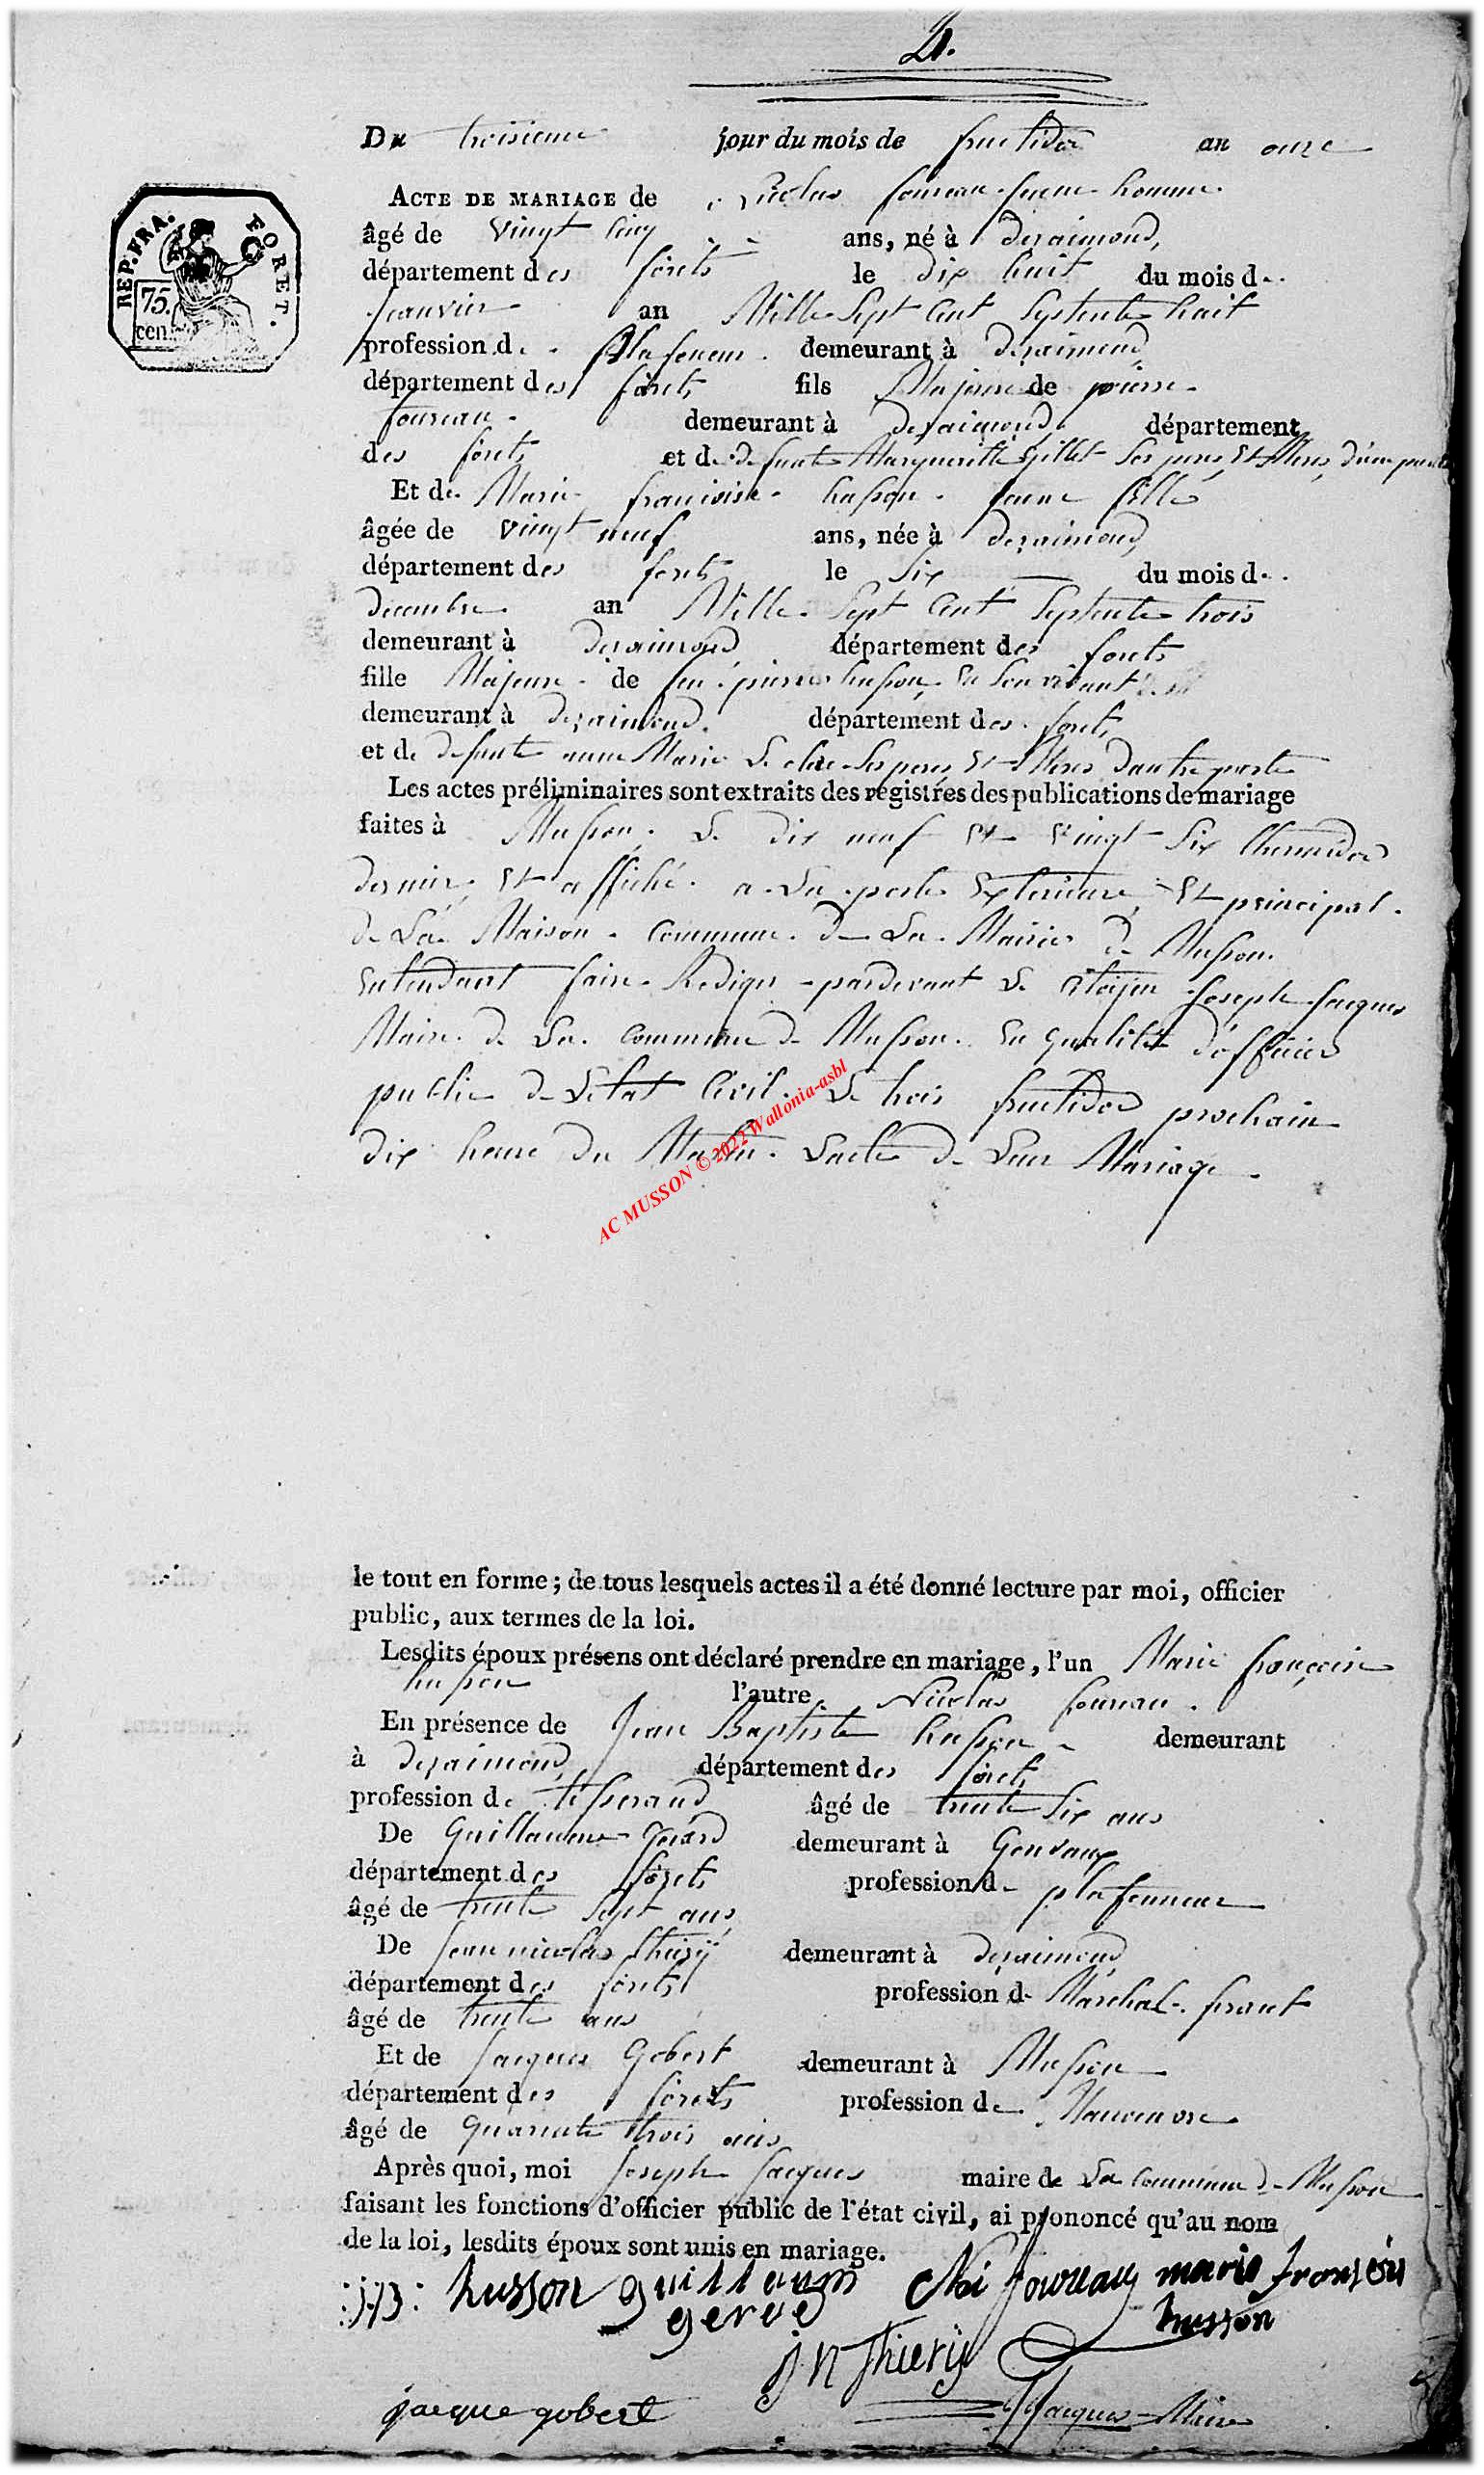 2.
Du troisieme jour du mois de fructidor an onze
REP. FRA. FORET.
75. cen.
ACTE DE MARIAGE de Nicolas foureau jeune homme
âgé de vingt cinq ans, né à deraimond,
département des forêts le dix huit du mois de
Janvier an Mille Sept Cent Septente huit
profession de plafoneur demeurant à deraimond
département des forêts fils Majeure de pierre
foureau demeurant à deraimond, département
des forêts et de defunte Margueritte gillet Ses peres Et Meres d'une parte
Et de Marie françoise husson jeune fille
âgée de vingt neuf ans, née à deraimond,
département des forets le Six du mois de
decembre an Mille Sept Cent Septente trois
demeurant à deraimond département des forets
fille Majeure de feu pierre husson En Son vivant
demeurant à deraimond. département des forets
et de defunte anne Marie Ses peres Et Meres dautre parte
Les actes préliminaires sont extraits des registres des publications de mariage
faites à Musson. Le dix neuf Et vingt Six thermidor
dernier, Et affiché a La porte Exterieure Et principal
de La Maison Commune de La Mairie de Musson.
Entendant faire Rediger pardevant Le Citoijen Joseph Jacques
Maire de La Commune de Musson En qualité d'officier
public de Letat Civil. Le trois fructidor prochain
dix heure du Matin. Lacte de Leur Mariage.
AC MUSSON © 2022 Wallonia-asbl
le tout en forme ; de tous lesquels actes il a été donné lecture par moi, officier
public, aux termes de la loi.
Lesdits époux présens ont déclaré prendre en mariage, l'un Marie françoise
husson l'autre Nicolas foureau.
En présence de Jean Baptiste husson demeurant
à deraimond, département des forêts
profession de tisserand âgé de trente Six ans
De Guillaume Gerard demeurant à Gorvaux
département des forets profession de plafonneur
âgé de trente Sept ans
De Jean nicolas thierÿ demeurant à deraimond
département des forêts profession de Marchal ferant
âgé de trente ans
Et de Jacques Gobert demeurant à Musson
département des forets profession de Manoeuvre
âgé de quarante trois ans
Après quoi, moi Joseph Jacques maire de La Commune de Musson
faisant les fonctions d'officier public de l'état civil, ai prononcé qu'au nom
de la loi, lesdits époux sont unis en mariage.
: j:B : husson guillaum Nei foureau marie fransoisu
husson
j n thierij
jacque gobert J Jacques Maire